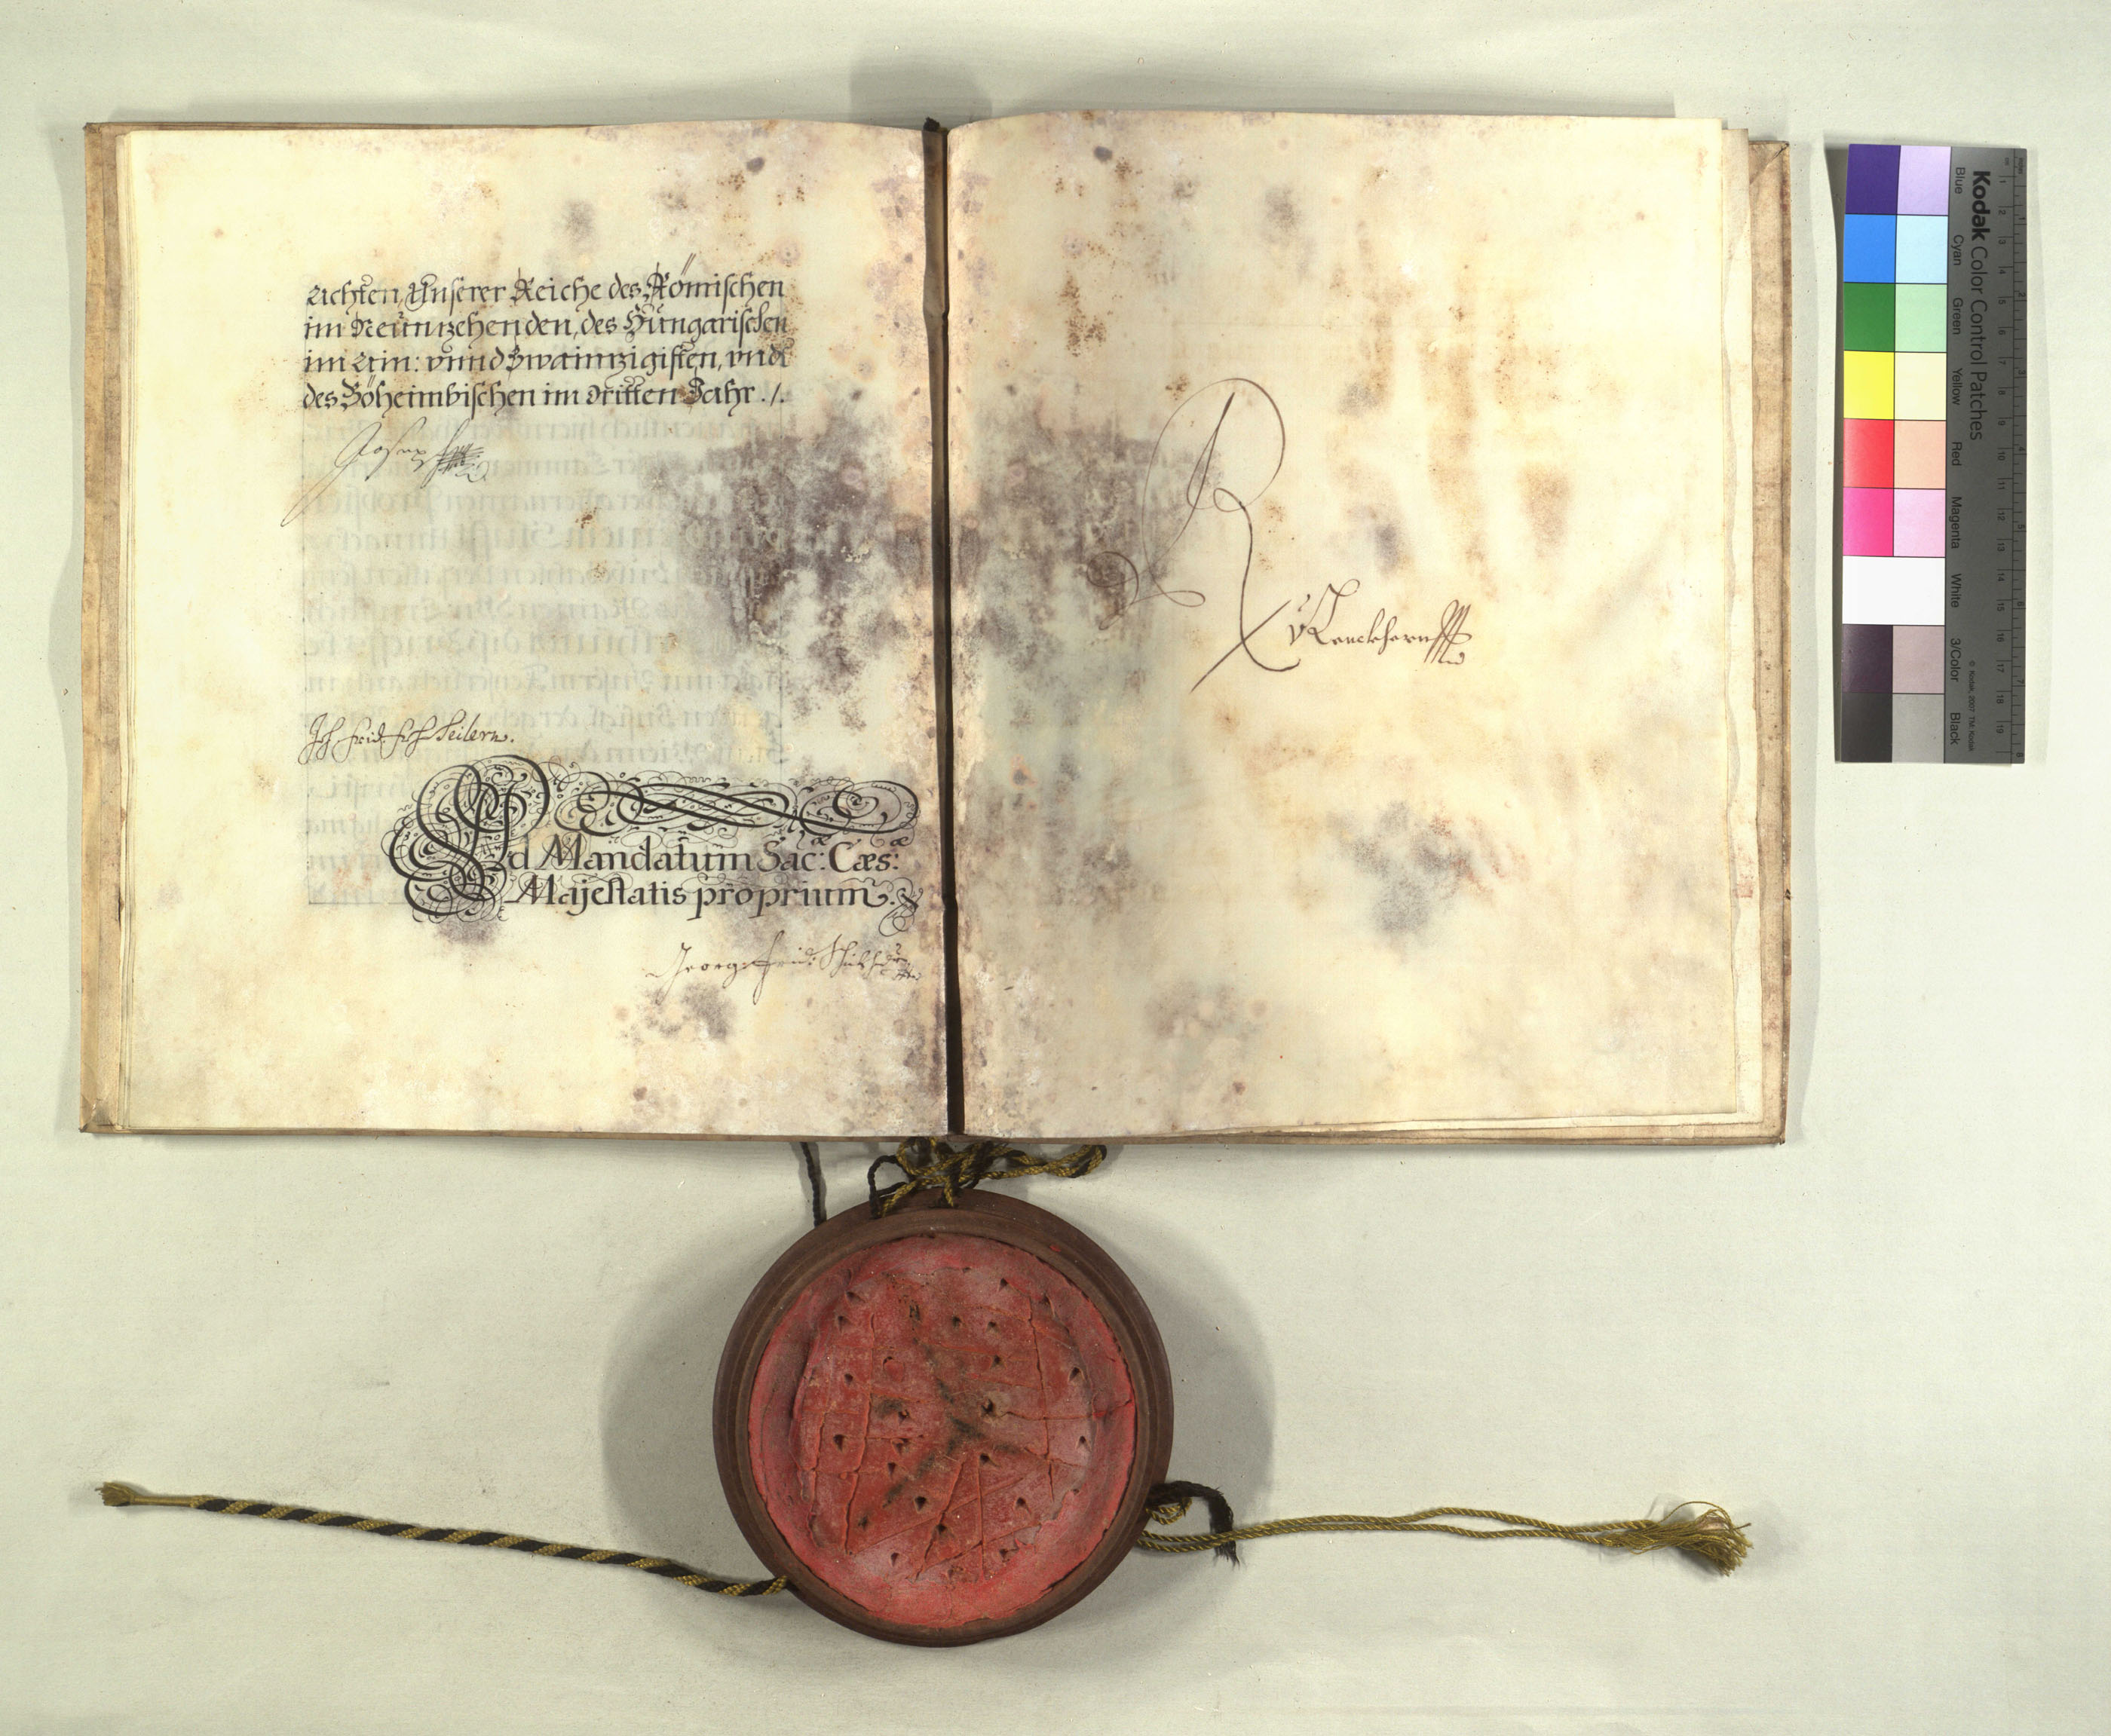 Achten, Unserer Reiche des Römischen
im Neünzehenden, des Hüngarischen
im Ain: vnnd Zwainzigisten, vnd
des Böheimbischen im dritten Jahr ./.
Joseph
Joh. Frid. frh. Seilern.
Ad Mandatum Sac: Cæs:
æ æ
Majestatis proprium.
George Frid:
R
Kodak Color Control Patches
Blue Cyan Green Yellow Red Magenta White 3/Color Black
© Kodak, 2007 TM: Kodak